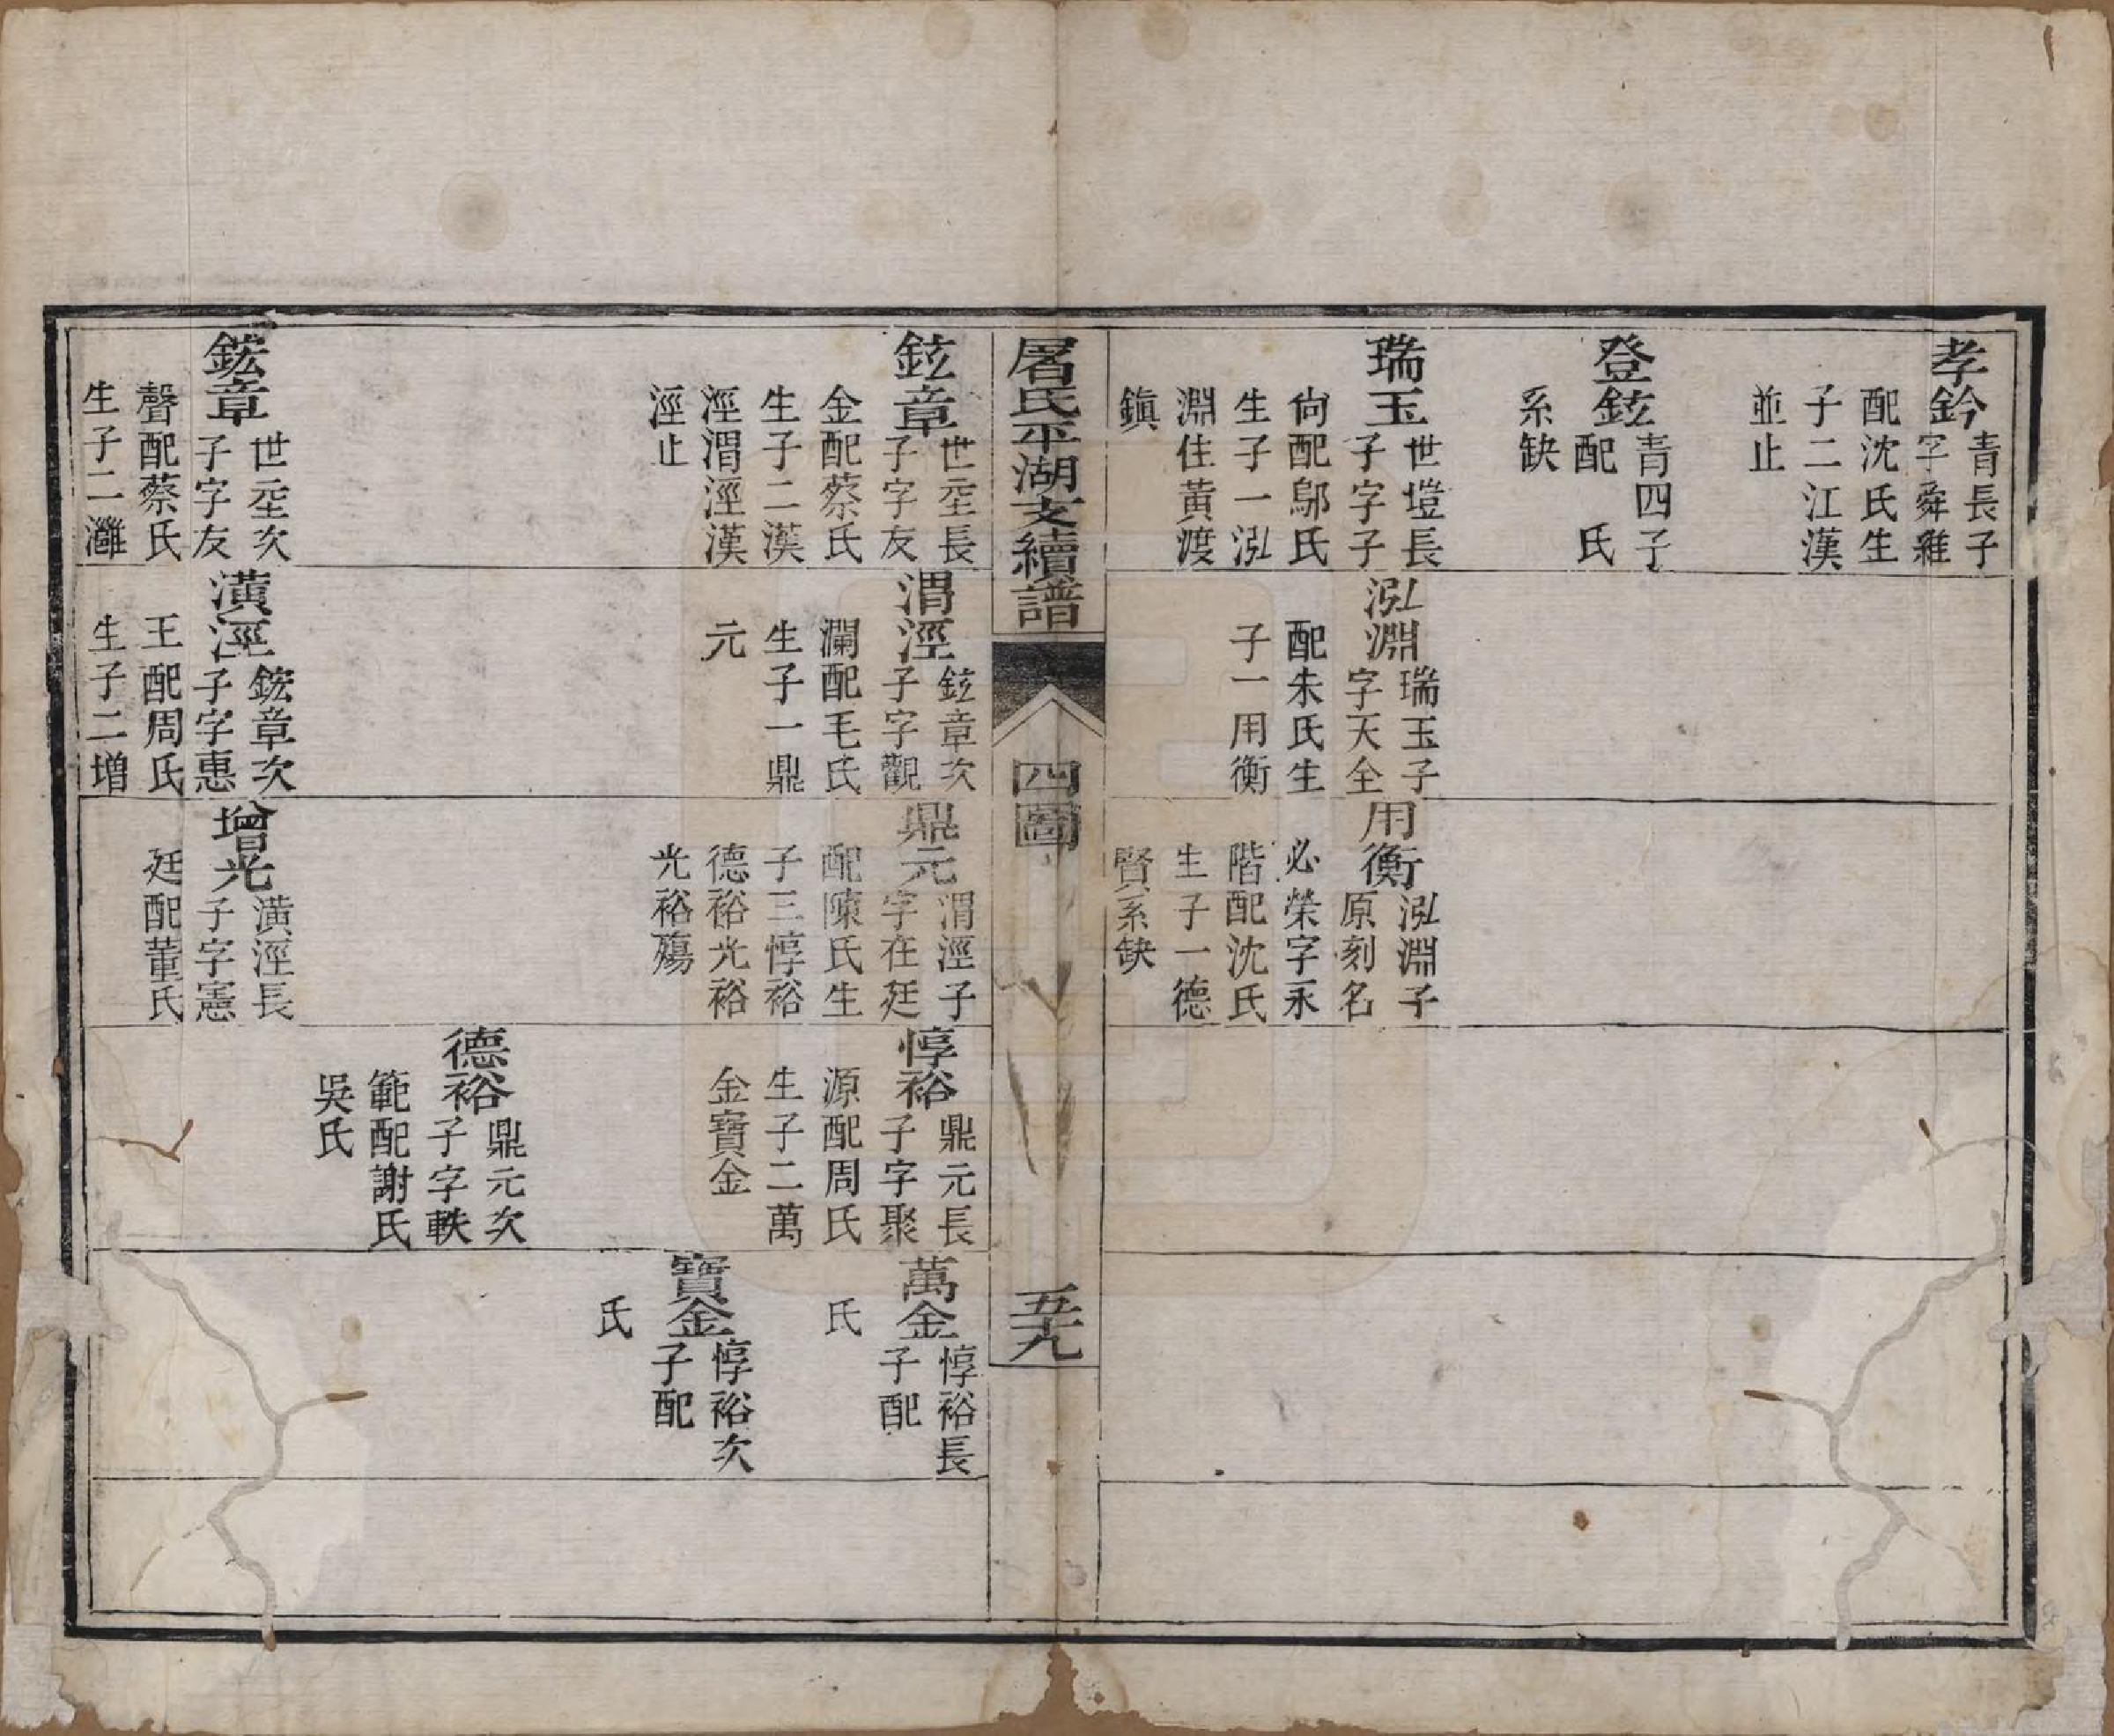 孝鈐
青長子
字舜雞
配沈氏生
子二江漢
並止
登鉉
青四子
配　氏
系缺
瑞玉
世塏長
子字子
尙配鄔氏
生子一泓
淵住黃渡
鎭
泓淵
瑞玉子
字天全
配朱氏生
子一用衡
用衡
泓淵子
原刻名
必榮字永
階配沈氏
生子一德
賢系缺
屠氏平湖支續譜
四圖
五十九
鉉章
世坖長
子字友
金配蔡氏
生子二漢
涇渭涇漢
涇止
渭涇
鉉章次
子字觀
瀾配毛氏
生子一鼎
元
鼎元
渭涇子
字在廷
配陳氏生
子三惇裕
德裕光裕
光裕殤
惇裕
鼎元長
子字聚
源配周氏
生子二萬
金寶金
萬金
惇裕長
子配
氏
寶金
惇裕次
子配
氏
德裕
鼎元次
子字軼
範配謝氏
吳氏
鋐章
世坖次
子字友
聲配蔡氏
生子二灉
潢涇
鋐章次
子字惠
王配周氏
生子二增
增光
潢涇長
子字憲
廷配董氏